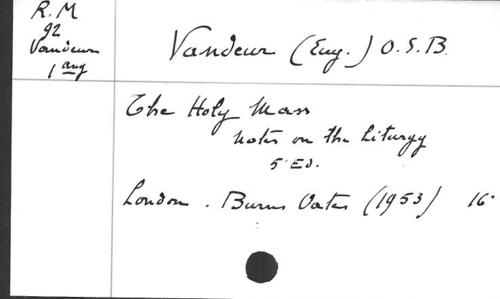 R.M
92
Vandeur
1 ang
Vandeur (Eug.) O.S.B.
The Holy Mass
Notes on the Liturgy
5 Ed.
London. Burns Oates (1953) 16°